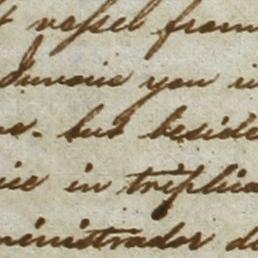 t vessel from
Invoice you i
but beside
ice in triplica
ministrador d